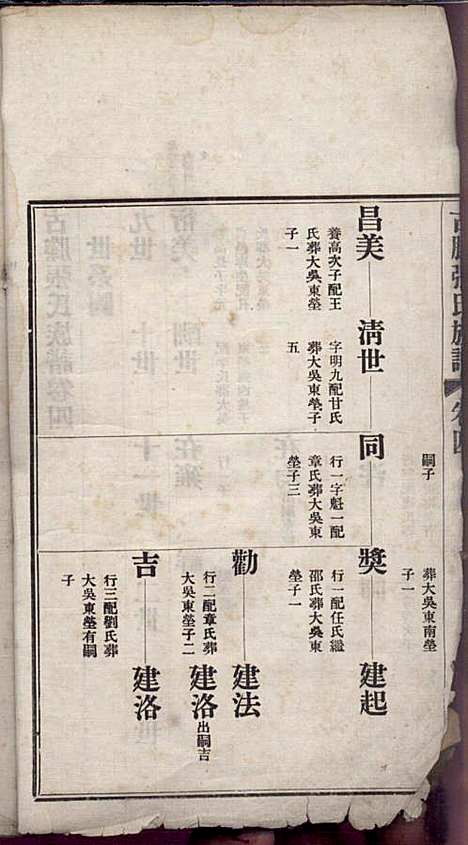 古滕張氏族譜 卷四
嗣子
葬大吳東南塋
子一
昌美
養高次子配王
氏葬大吳東塋
子一
淸世
字明九配甘氏
葬大吳東塋子
五
同
行一字魁一配
章氏葬大吳東
塋子三
獎
行一配任氏繼
邵氏葬大吳東
塋子一
建起
勸
行二配章氏葬
大吳東塋子二
建法
建洛出嗣吉
吉
行三配劉氏葬
大吳東塋有嗣
子
建洛